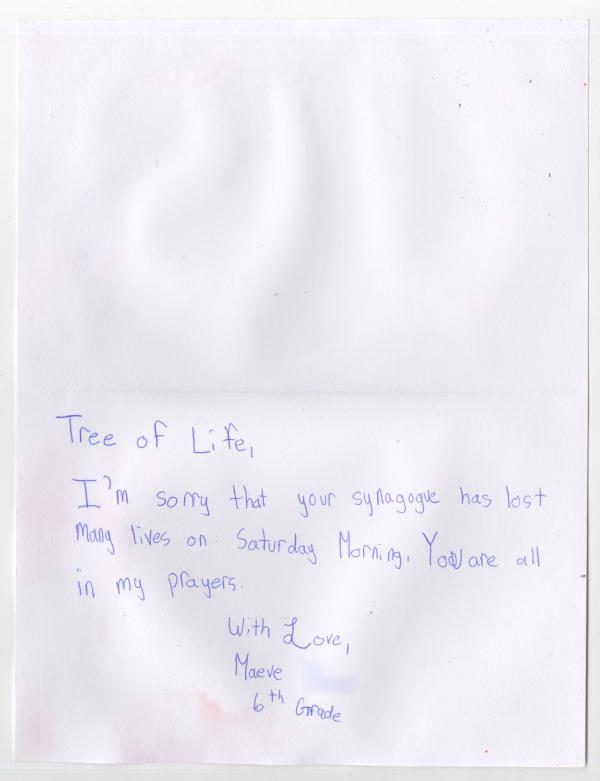 Tree of Life,
I'm sorry that your synagogue has lost
Many lives on Saturday Morning. You are all
in my prayers.
With Love,
Maeve
6th Grade